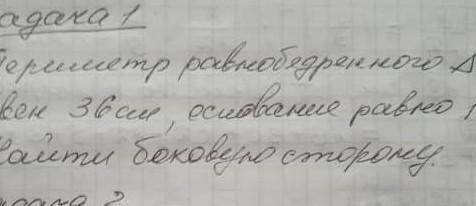 адача 1
Периметр равнобедренного Δ
вен 36 см, основание равно 1
Найти боковую сторону.